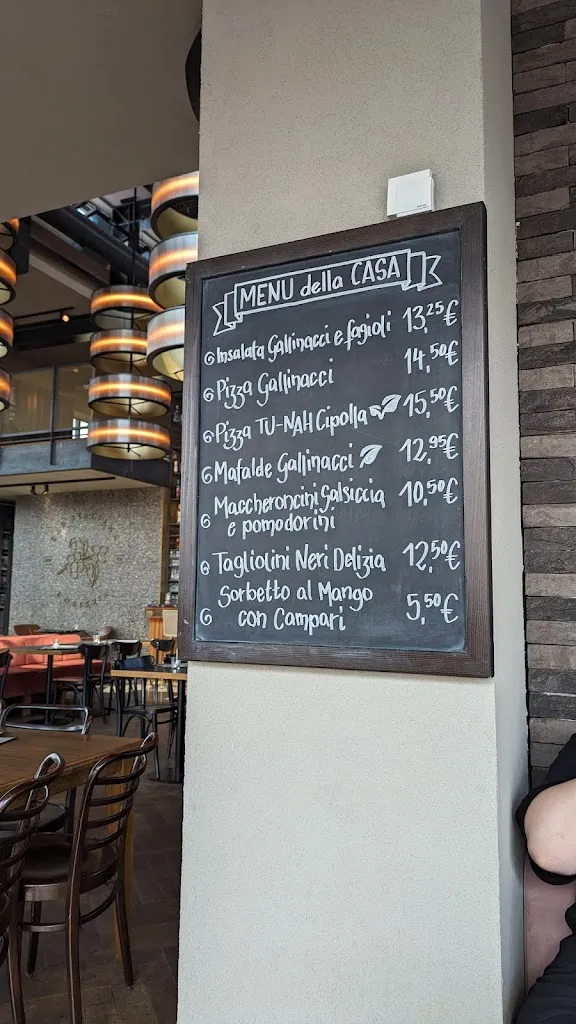 MENU della CASA
Insalata Gallinacci e fagioli 13,25€
Pizza Gallinacci 14,50€
Pizza TU-NAH Cipolla 15,50€
Mafalde Gallinacci 12,95€
Maccheroncini Salsiccia
e pomodorini 10,50€
Tagliolini Neri Delizia 12,50€
Sorbetto al Mango
con Campari 5,50€